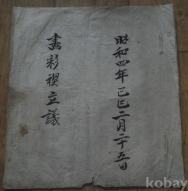 昭和四年己巳二月二十五日
書彩禊立議
kobay